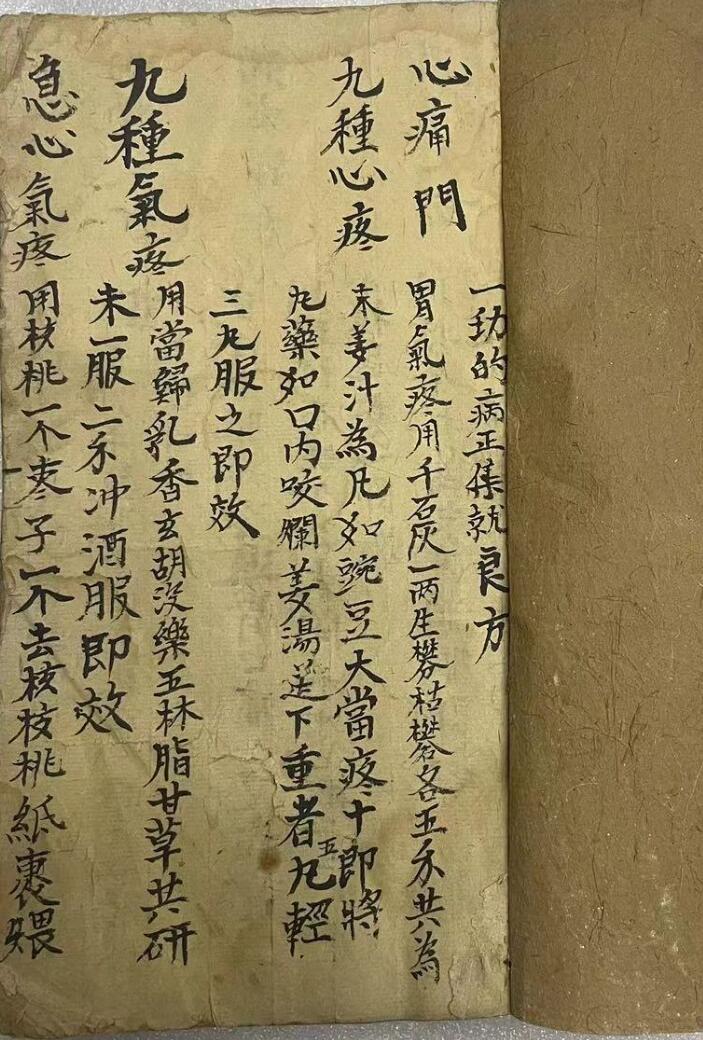 一切的病正集就良方
心痛門
胃氣疼用千石灰一兩生礬枯礬各五禾共為
九種心疼
末姜汁為凡如豌豆大當疼十即將
九藥如口內咬爛姜湯送下重者五九輕
三九服之即效
九種氣疼
用當歸乳香玄胡沒藥五林脂甘草共研
未一服二禾冲酒服即效
急心氣疼
用核桃一个枣子一个去核核桃紙裹煨